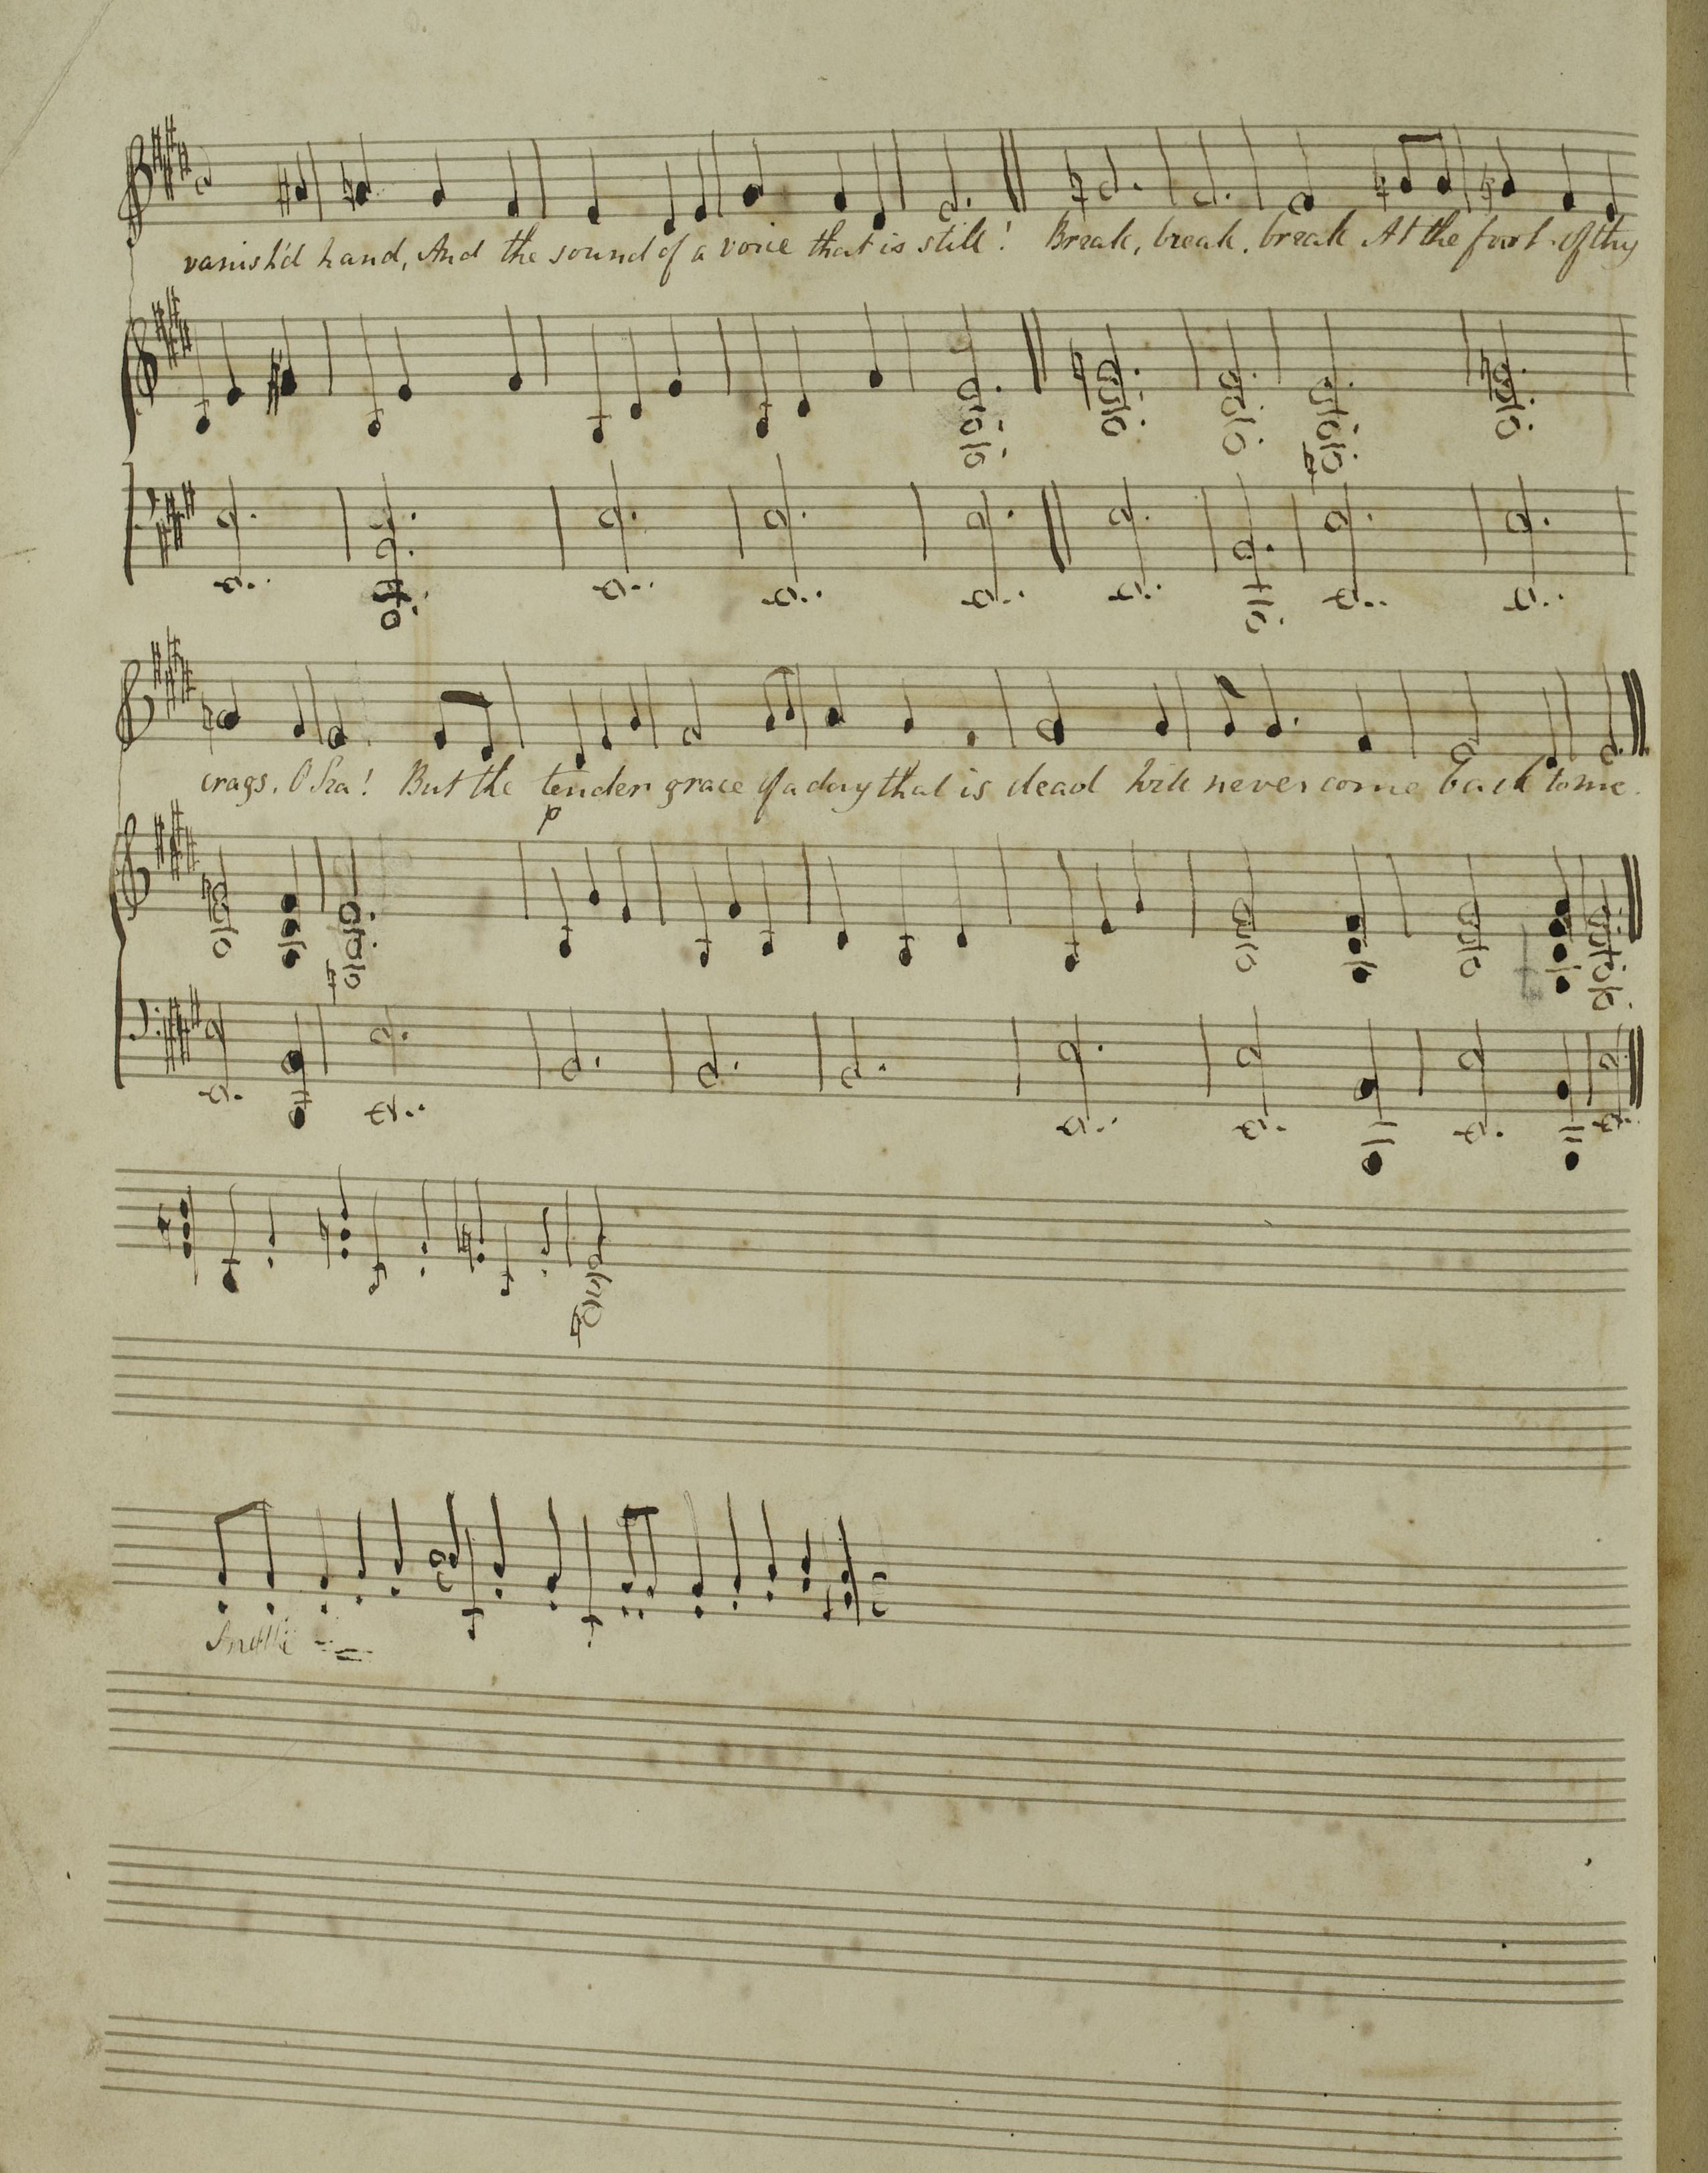 vanish'd hand, And the sound of a voice that is still! Break, break, break At the foot of thy
crags, O Sea! But the tender grace of a day that is dead Will never come back to me.
p